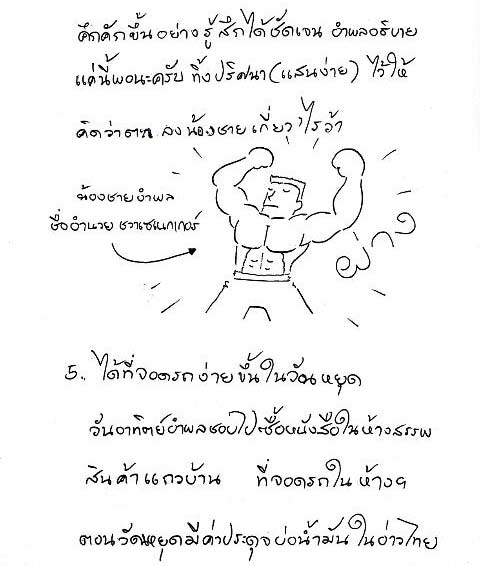 คึกคักขึ้นอย่างรู้สึกได้ชัดเจน อำพลอธิบาย
แค่นี้พอนะครับ ทิ้งปริศนา(แสนง่าย) ไว้ให้
คิดว่าตา ลงน้องชายเกี่ยวไรว้า
น้องชายอำพล
ชื่ออำนวย ชวาเซเนกเกอร์
ผ่าง
5. ได้ที่จอดรถง่ายขึ้นในวันหยุด
วันอาทิตย์อำพลชอบไปซื้อหนังสือในห้างสรรพ
สินค้าแถวบ้าน ที่จอดรถในห้างฯ
ตอนวันหยุดมีค่าประดุจบ่อน้ำมันในอ่าวไทย